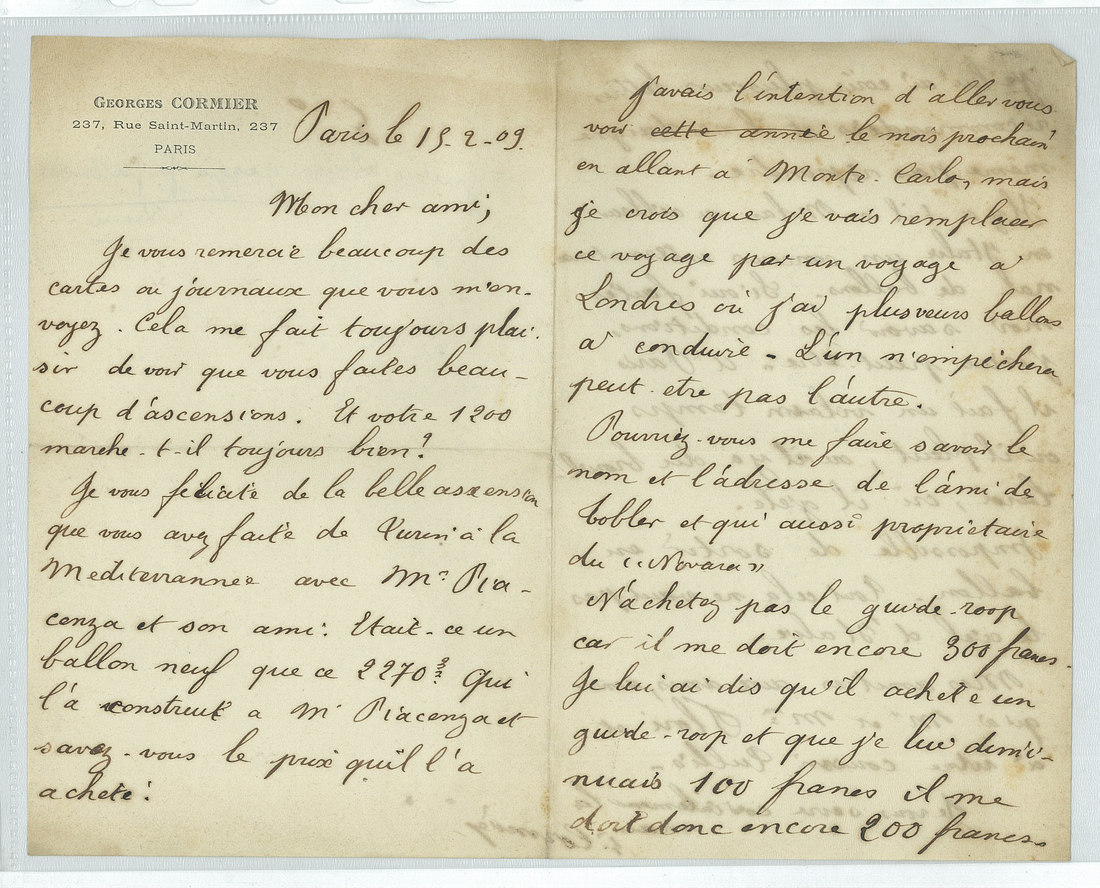 GEORGES CORMIER
237, Rue Saint-Martin, 237
PARIS
Paris le 15-2-09.
Mon cher ami,
Je vous remercie beaucoup des
cartes ou journaux que vous m'en-
voyez. Cela me fait toujours plai-
sir de voir que vous faites beau-
coup d'ascensions. Et votre 1200
marche-t-il toujours bien?
Je vous félicite de la belle ascension
que vous avez faite de Turin à la
Mediterrannée avec Mr. Pia-
cenza et son ami. Etait-ce un
ballon neuf que ce 2270 m3? Qui
l'a construit a Mr Piacenza et
savez-vous le prix qu'il l'a
acheté?
J'avais l'intention d'aller vous
voir cette année le mois prochain
en allant à Monte-Carlo, mais
je crois que je vais remplacer
ce voyage par un voyage a
Londres où j'ai plusieurs ballons
a conduire - L'un n'empêchera
peut-etre pas l'autre.
Pourriez-vous me faire savoir le
nom et l'adresse de l'ami de
Tobler et qui aussi propriétaire
du "Novara"
N'achetez pas le guide-roop
car il me doit encore 300 francs.
Je lui ai dis qu'il achete un
guide-roop et que je lui dimi-
nuais 100 francs il me
doit donc encore 200 francs.